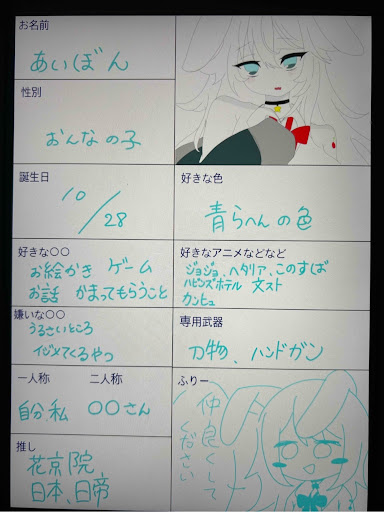 お名前
あいぼん
性別
おんなの子
誕生日
10/28
好きな色
青らへんの色
好きな○○
お絵かき ゲーム
お話 かまってもらうこと
好きなアニメなどなど
ジョジョ、ヘタリア、このすば
ハズビンズホテル 文スト
カンヒュ
嫌いな○○
うるさいところ
イジメてくるやつ
専用武器
刀物、ハンドガン
一人称 二人称
自分、私 ○○さん
推し
花京院
日本、日帝
ふりー
仲良くして
ください